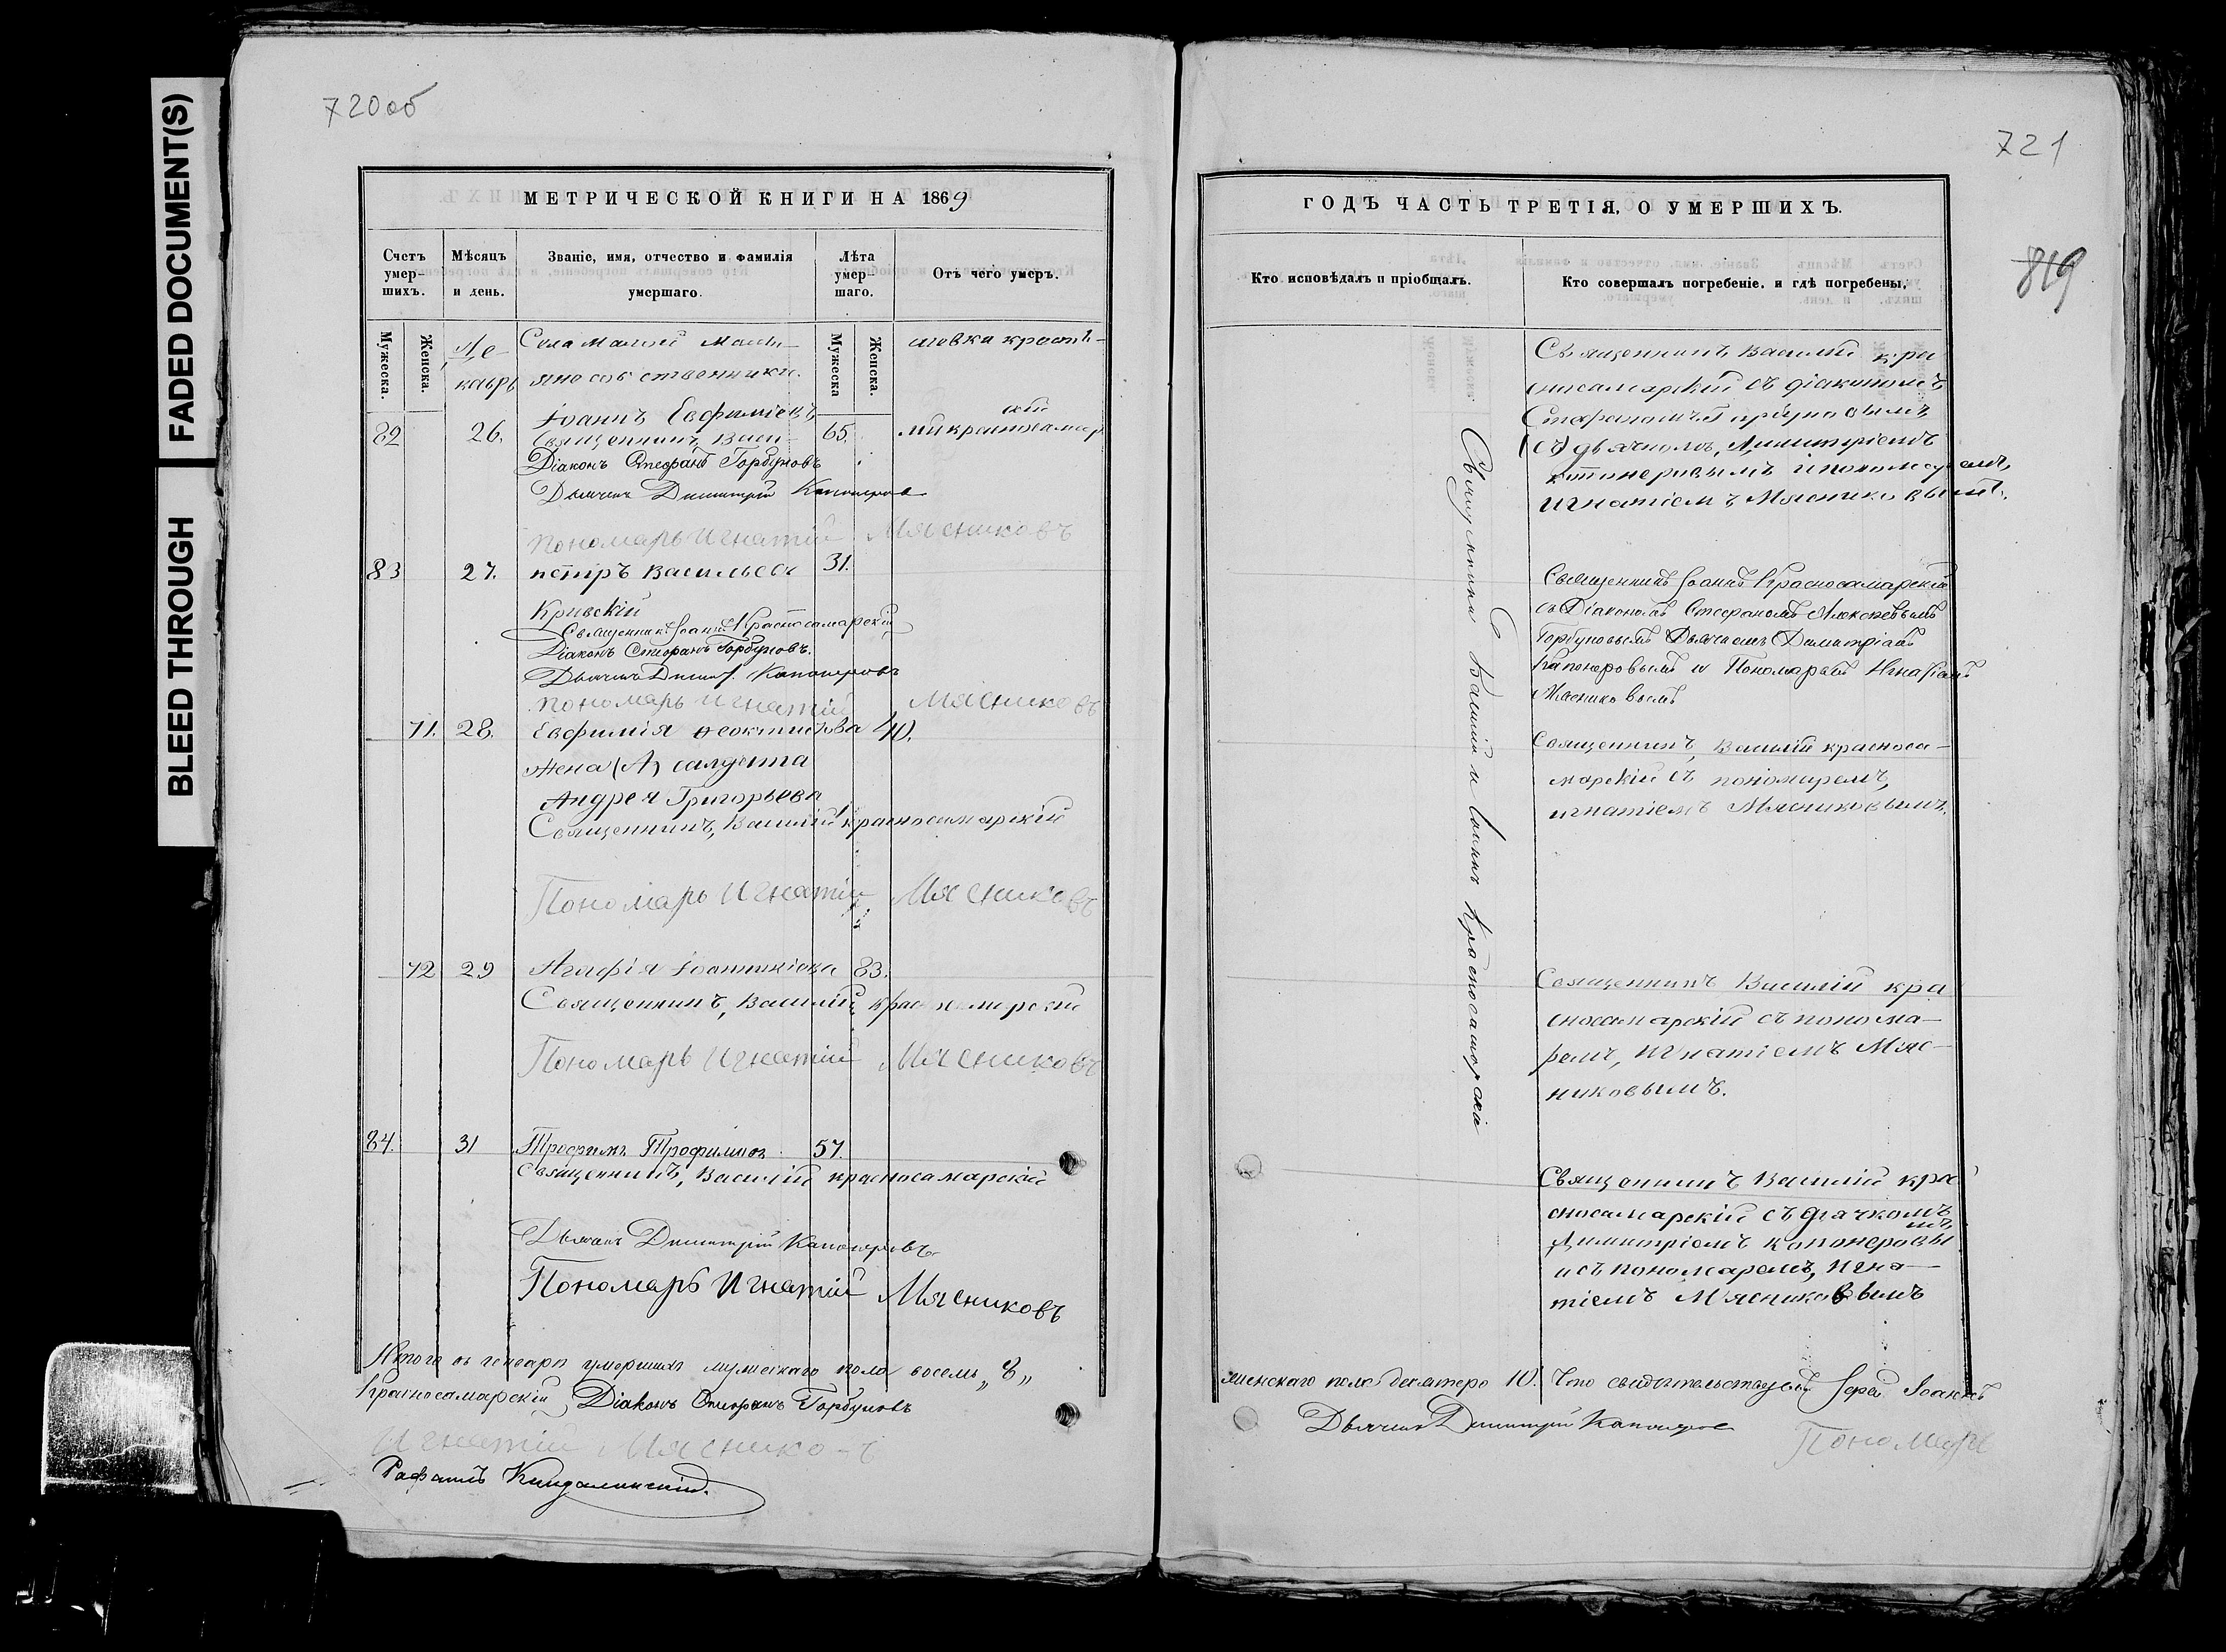 FADED DOCUMENT(S)
BLEED THROUGH
720об
МЕТРИЧЕСКОЙ КНИГИ НА 1869
Счетъ умер-шихъ.
Мѣсяцъ и день.
Званіе, имя, отчество и фамилія умершаго.
Лѣта умер-шаго.
Отъ чего умеръ.
Мужеска.
Женска.
Мужеска
Женска.
Де-
кабрь
Села Малой Малы-
шевка крестъ-
яне собственники.
82
26.
Іоаннъ Евфиміевъ
65.
Священникъ Васи-
лій красносамар
скій
Діаконъ Стефанъ Горбуновъ
Дьячекъ Димитрій Капонеровъ
Пономарь Игнатій Мясниковъ
83
27.
петръ Васильевъ
31.
Кривскій
Священникъ Іоаннъ Красносамарскій
Діаконъ Стефанъ Горбуновъ.
Дьячекъ Димит. Капонеровъ
Пономарь Игнатій Мясниковъ
71.
28.
Евфимія Ѳеоктистова
40.
жена (А) салдата
Андрея Григорьева
Священникъ, Василій красносамарскій
Пономарь Игнатій Мясниковъ
72
29
Агафія Іоанникіева
83.
Священникъ, Василій красносамарскій
Пономарь Игнатій Мясниковъ
84.
31
Трофимъ Трофимовъ
57.
Священникъ, Василій красносамарскій
Дьячекъ Димитрій Капонеровъ
Пономарь Игнатій Мясниковъ
Итого въ умершихъ мужескаго пола восемь „8„
Красносамарскій Діаконъ Стефанъ Горбуновъ
Игнатій Мяснико-ъ
Рафаилъ
721
819
ГОДЪ ЧАСТЬ ТРЕТІЯ, О УМЕРШИХЪ.
Кто исповѣдалъ и пріобщалъ.
Кто совершалъ погребеніе, и гдѣ погребены,
Священники Василій и Іоаннъ Красносамарскіе
Священникъ Василій кра
сносамарскій съ діакономъ
Стефаномъ Горбуновымъ,
(съ) дьячкомъ, Димитріемъ
капонеровымъ и пономаремъ,
игнатіемъ Мясниковымъ.
Священникъ Іоаннъ Красносамарскій
съ Діакономъ Стефаномъ Алексѣевымъ
Горбуновымъ Дьячкомъ Димитріемъ
Капонеровымъ и Пономаремъ Игнатіемъ
Мясниковымъ
Священникъ, Василій красноса-
марскій съ пономаремъ,
игнатіемъ Мясниковымъ.
Священникъ Василій кра
сносамарскій съ понома-
ремъ, Игнатіемъ Мяс-
никовымъ.
Священникъ Василій кра
сносамарскій съ дьячкомъ
Димитріемъ капонеровы
мъ,
и съ пономаремъ, Игна-
тіемъ Мясниковымъ
женскаго пола десятеро 10. Что свидѣтельствуемъ Іерей Іоаннъ
Дьячекъ Димитрій Капонеровъ
Пономарь